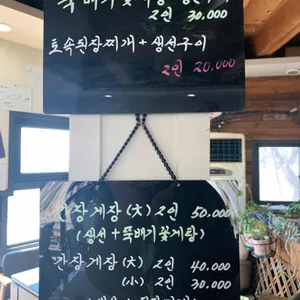 2인 30,000
토속된장찌개 + 생선구이
2인 20,000
간장게장 (大) 2인 50,000
(생선 + 뚝배기꽃게탕)
간장게장 (大) 2인 40,000
(小) 2인 30,000